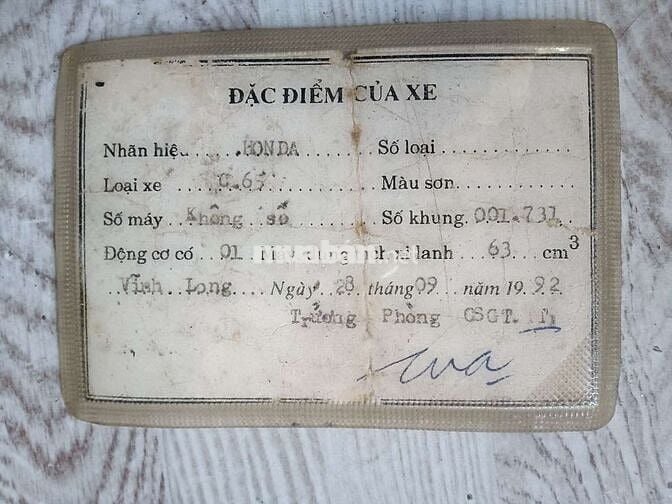 ĐẶC ĐIỂM CỦA XE
Nhãn hiệu.....HONDA.......... Số loại..............
Loại xe ....C.65.............. Màu sơn..............
Số máy ..Không số............ Số khung 001.731
Động cơ có ..01.. tích xi lanh ..63.. cm3
..Vĩnh Long..... Ngày..28.tháng 09 năm 19.92
Trưởng Phòng CSGT.